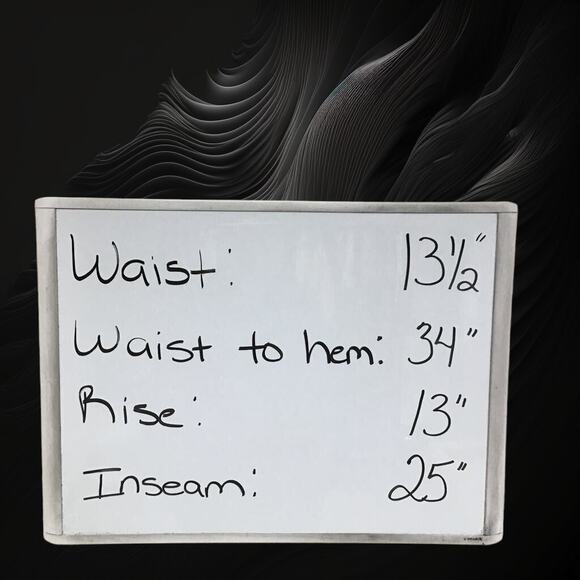 Waist: 13½"
Waist to hem: 34"
Rise: 13"
Inseam: 25"